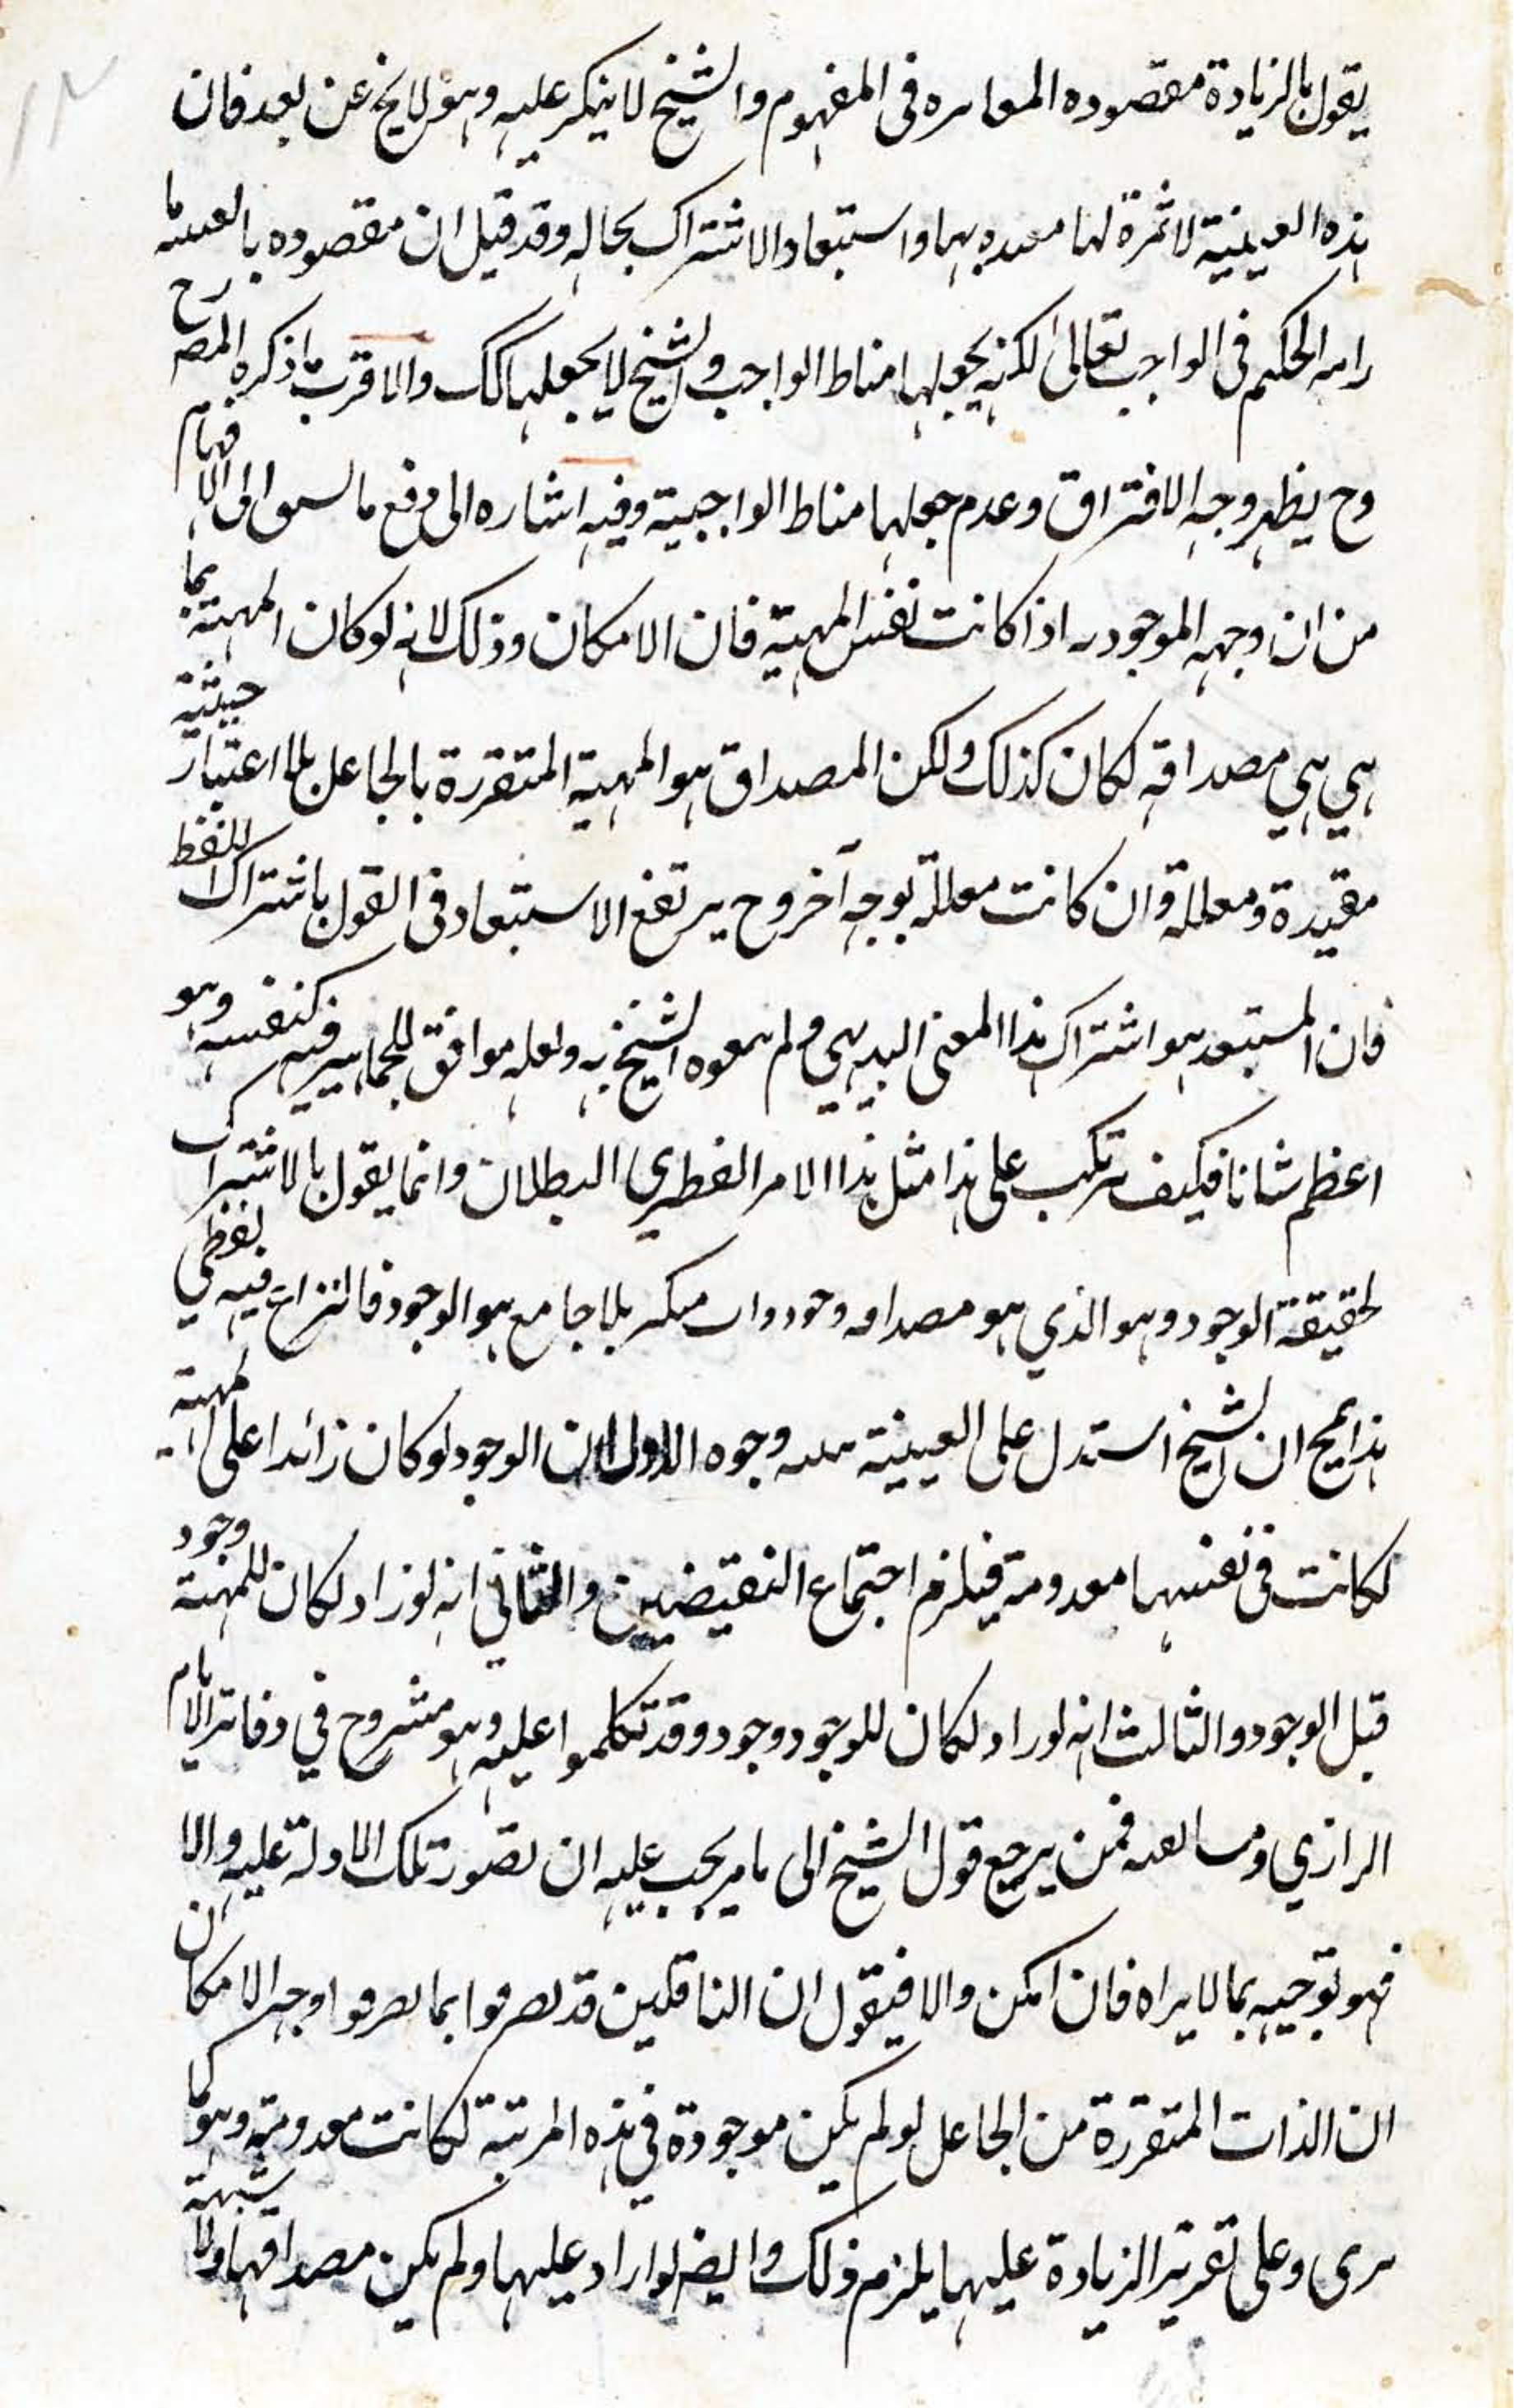 يقول بالزيادة مقصوده المعاىره فى المفهوم والشيخ لا ينكر عليه وهو لا يخ عن بعد فان
هذه العينية لا ثمرة لها معىد بها واستبعاد الاشتراك بحاله وقد قيل ان مقصوده بالعىىىه ما
رامه الحكيم فى الواجب تعالى لكنه يجعلها مناط الواجب والشيخ لا يجعلها كك والاقرب ما ذكره المصـ رح
وح يظهر وجه الافتراق وعدم جعلها مناط الواجبية وفيه اشاره الى دفع ما ىسىق الى الافهام
من ان وجهه الموجودىه اذا كانت نفس المهية فان الامكان وذلك لانه لو كان المهية بما
هي هي مصداقه لكان كذلك ولكن المصداق هو المهية المتقررة بالجاعل بلا اعتبار حيثية
مقيدة ومعللة وان كانت معللة بوجه آخر وح يرتفع الاستبعاد فى القول باشتراك اللفظ
فان المستبعد هو اشتراك هذا المعنى البديهي ولم ىىفوه الشيخ به ولعله موافق للجماهير فيه كنفسه وهو
اعظم شانا فكيف يرتكب على هذا مثل هذا الامر الفطري البطلان وانما يقول بالاشتراك
لحقيقة الوجود وهو الذي هو مصداىه وحودواں مىكىر بلا جامع هو الوجود فالنزاع فيه لفظي
هذا يخ ان الشيخ استدل على العينية ىىىىه وجوه الاول ان الوجود لو كان زائدا على المهية
لكانت فى نفسها معدومة فيلزم اجتماع النقيضين والثاني انه لو زاد لكان للمهية وجود
قبل الوجود والثالث انه لو زاد لكان للوجود وجود وقد تكلموا عليه وهو مشروح في دفاتر الامام
الرازي ومىاىعىه فمن يرجع قول الشيخ الى ما مر يجب عليه ان تصور تلك الادلة عليه والا
فهو توجيه بما لا يراه فان امكن والا فيقول ان الناقلين قد تصرفوا بما تصرفوا وجه الامكان
ان الذات المتقررة من الجاعل لو لم يكن موجودة في هذه المرتبة لكانت معدومة وهو كما
ىرى وعلى تقرير الزيادة عليها يلزم ذلك وايضـ لو اراد عليها ولم يكن مصداقها ولا شبهة